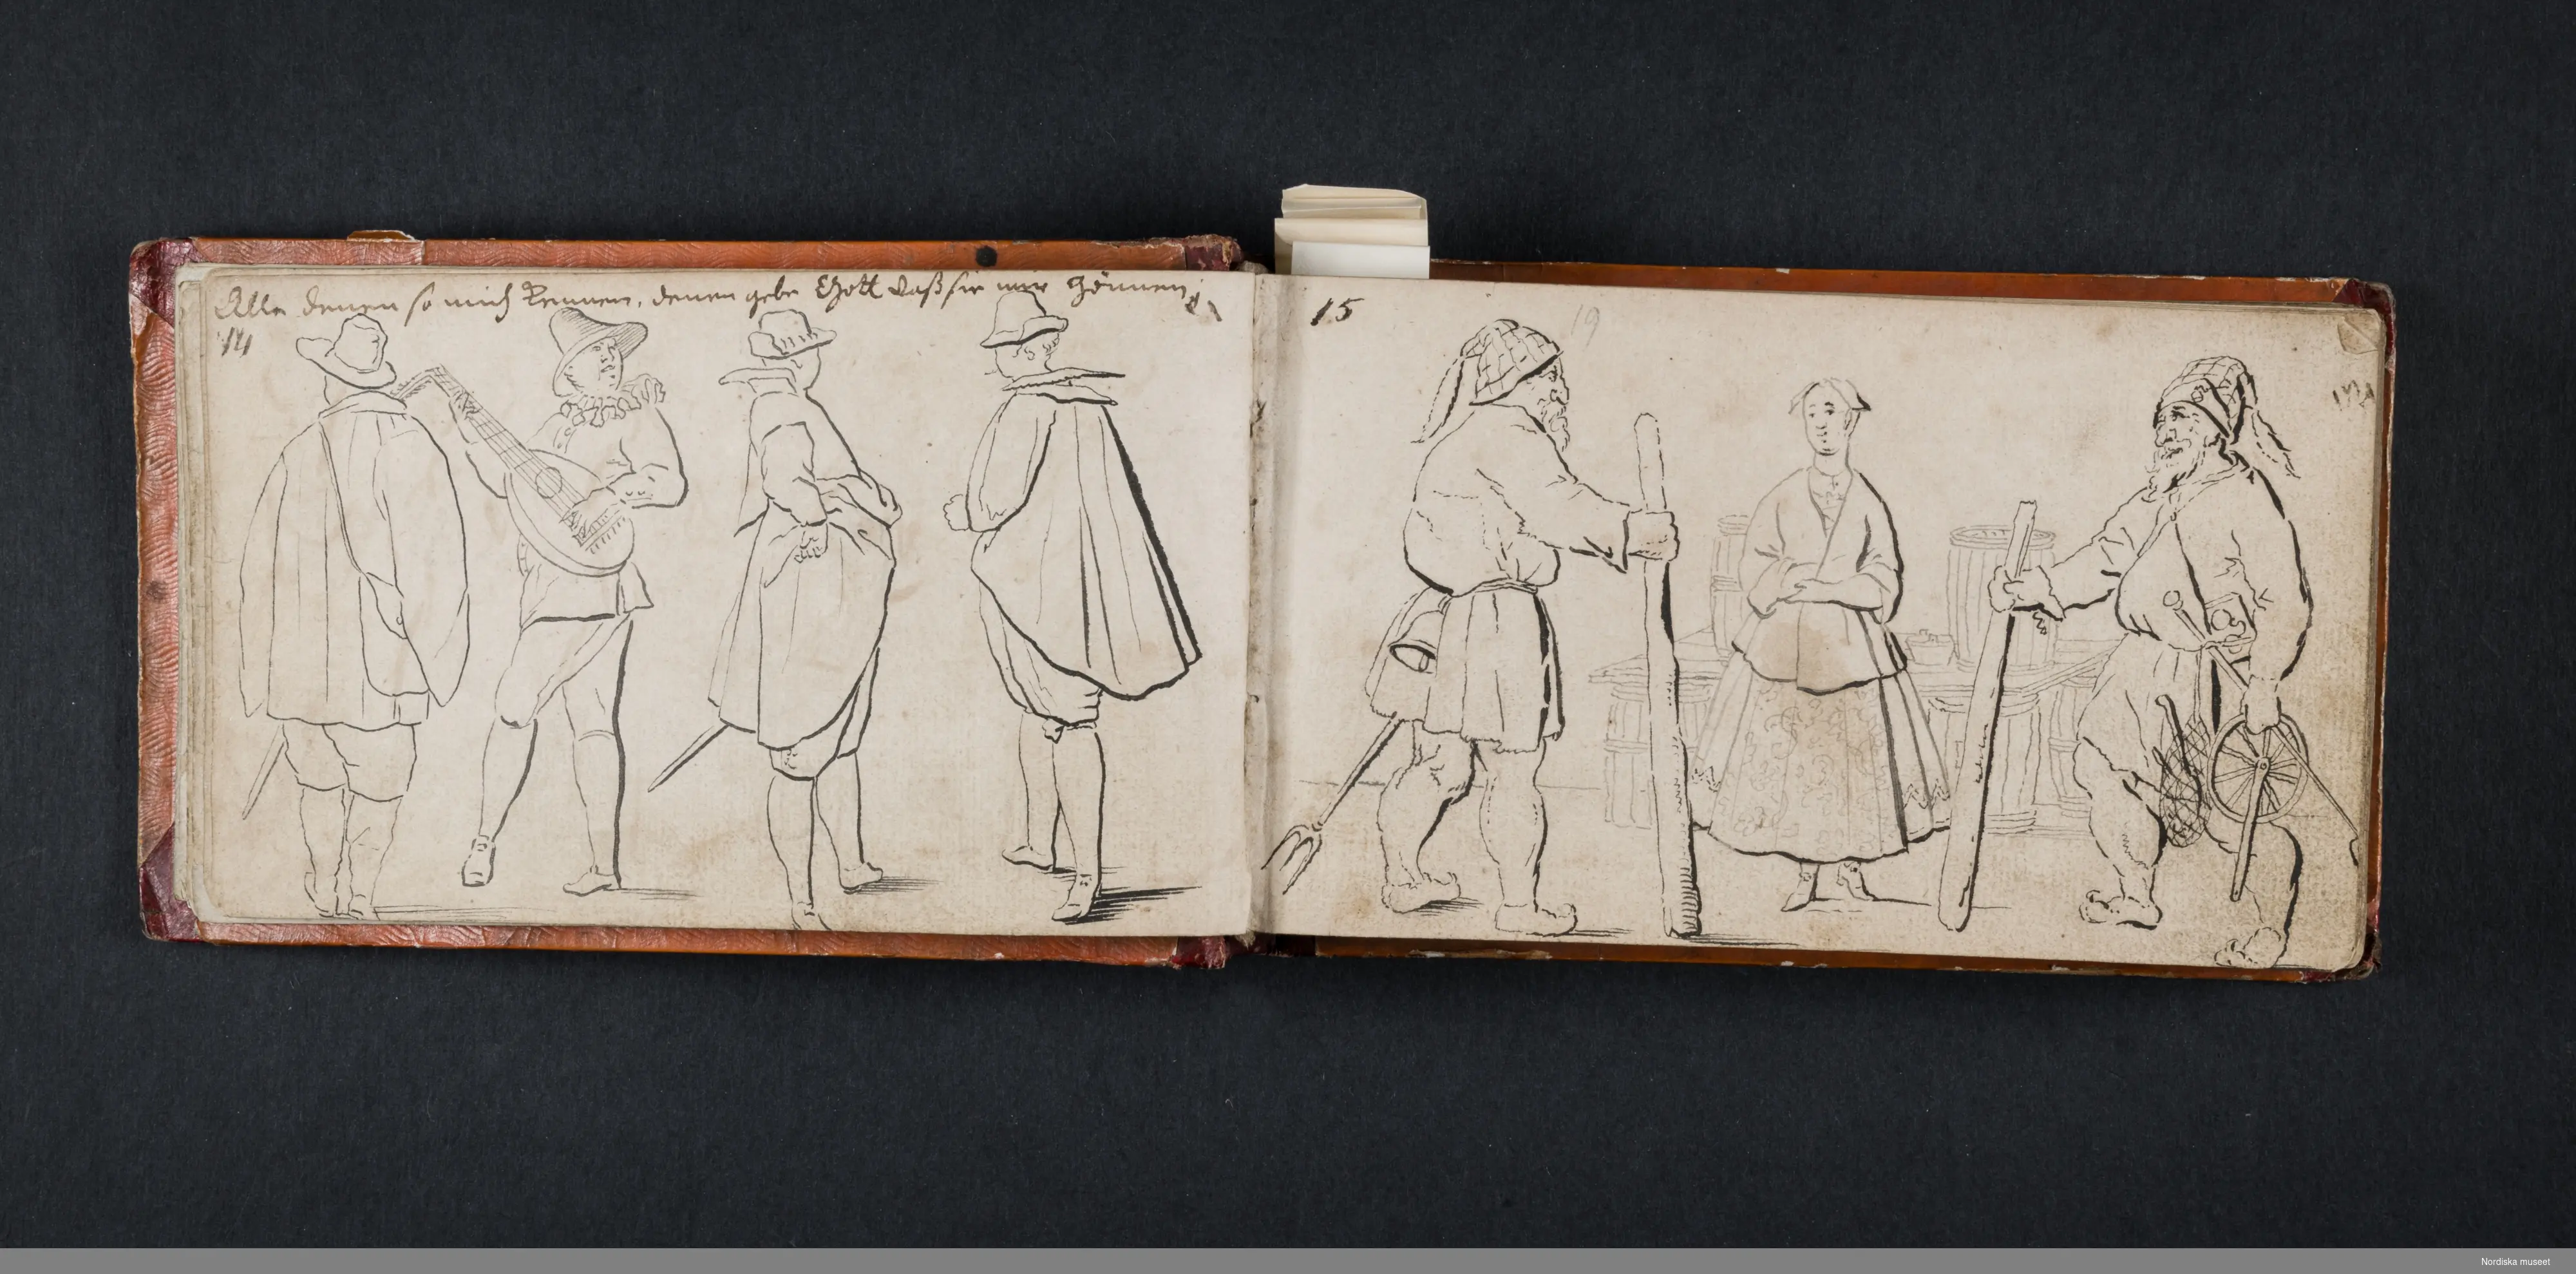 Alle denen so mich Kennen, denen gebe Gott daß sie mir Gönnen
14
15
19
Nordiska museet